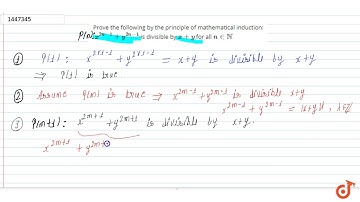 1447345
Prove the following by the principle of mathematical induction:
P(n): x^{2n-1} + y^{2n-1} is divisible by x + y for all n ∈ N
① P(1): x^{2×1-1} + y^{2×1-1} = x+y is divisible by x+y
⇒ P(1) is true
② Assume P(m) is true ⇒ x^{2m-1} + y^{2m-1} is divisible x+y
x^{2m-1} + y^{2m-1} = (x+y)λ, λ∈
③ P(m+1): x^{2m+1} + y^{2m+1} is divisible by x+y.
x^{2m+1} + y^{2m+1}